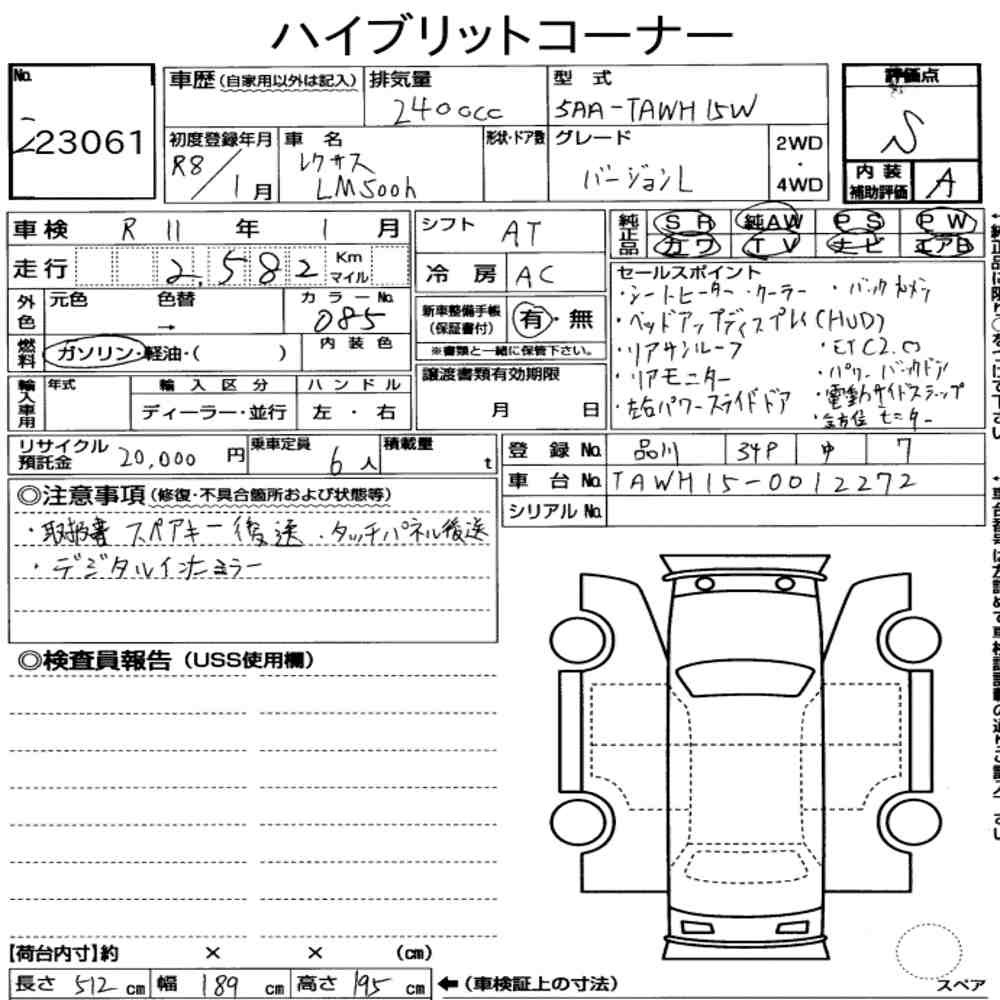 ハイブリットコーナー
No. 223061
車歴(自家用以外は記入) 排気量 2400cc 型式 5AA-TAWH15W
初度登録年月 R8/1月 車名 レクサス LM500h 形状・ドア数 グレード バージョンL 2WD・4WD
評価点 S
内装補助評価 A
車検 R 11 年 1 月
走行 2,582 Km マイル
外色 元色 色替 → カラーNo. 085
燃料 ガソリン・軽油・( ) 内装色
輸入車用 年式 輸入区分 ディーラー・並行 ハンドル 左・右
シフト AT
冷房 AC
新車整備手帳(保証書付) 有・無
※書類と一緒に保管下さい。
譲渡書類有効期限 月 日
純正品 SR 純AW PS PW
カワ TV ナビ エアB
セールスポイント
・シートヒーター・クーラー ・バックカメラ
・ヘッドアップディスプレイ(HUD)
・リアサンルーフ ・ETC2.0
・リアモニター ・パワーバックドア
・左右パワースライドドア ・電動サイドステップ
・全方位モニター
リサイクル預託金 20,000 円 乗車定員 6人 積載量 t
登録No. 品川 34P ゆ 7
車台No. TAWH15-0012272
シリアルNo.
◎注意事項(修復・不具合箇所および状態等)
・取扱書 スペアキー後送 ・タッチパネル後送
・デジタルインナーミラー
◎検査員報告(USS使用欄)
【荷台内寸】約 × × (cm)
長さ 512 cm 幅 189 cm 高さ 195 cm ←(車検証上の寸法)
スペア